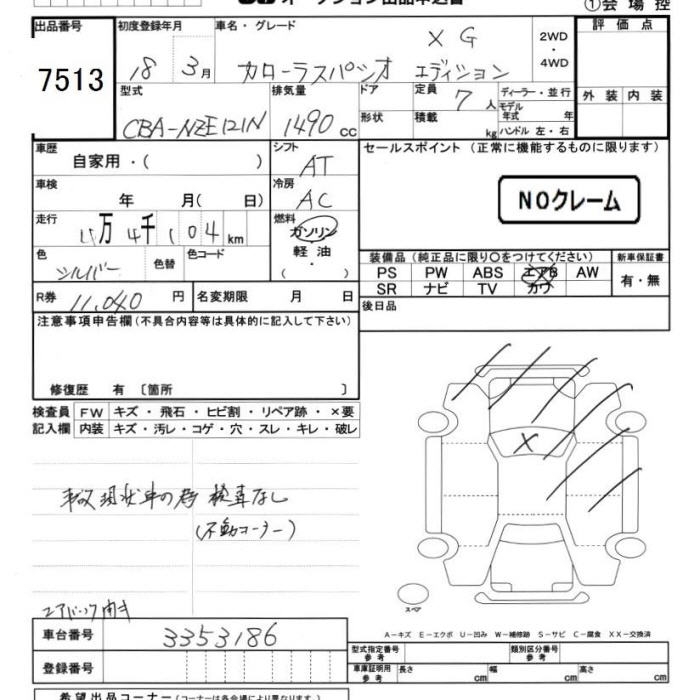 オークション出品申込書 ①会場控
出品番号 初度登録年月 車名・グレード 評価点
7513 18 3月 カローラスパシオ X G エディション 2WD ・ 4WD
型式 排気量 ドア 定員 7人 ディーラー・並行 外装 内装
CBA-NZE121N 1490cc 形状 積載 kg モデル年式 年
ハンドル 左・右
車歴 自家用・( ) シフト AT セールスポイント(正常に機能するものに限ります)
車検 年 月( 日) 冷房 AC NOクレーム
走行 万 4千 104 km 燃料 ガソリン 軽油 ・( )
色 シルバー 色替 色コード 装備品(純正品に限り○をつけてください) 新車保証書
PS PW ABS エアB AW 有・無
SR ナビ TV カワ
R券 11,040円 名変期限 月 日 後日品
注意事項申告欄(不具合内容等は具体的に記入して下さい)
修復歴 有 〔箇所 〕
検査員 FW キズ・飛石・ヒビ割・リペア跡・×要
記入欄 内装 キズ・汚レ・コゲ・穴・スレ・キレ・破レ
事故現状車の為 検査なし
(不動コーナー)
エアバック開き
スペア
A-キズ E-エクボ U-凹み W-補修跡 S-サビ C-腐食 XX-交換済
車台番号 3353186 型式指定番号 参考 類別区分番号 参考
登録番号 車庫証明用 参考 長さ cm 幅 cm 高さ cm
希望出品コーナー(コーナーは各会場により異なります。)